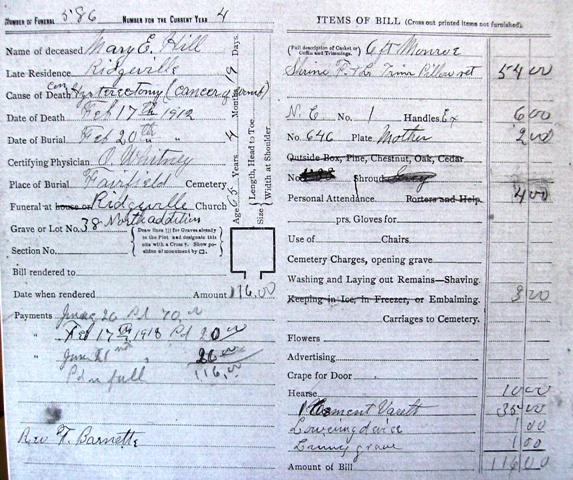 NUMBER OF FUNERAL 586 NUMBER FOR THE CURRENT YEAR 4
Name of deceased Mary E. Hill
Late Residence Ridgeville
Cause of Death Hysterectomy (cancer of womb)
Date of Death Feb 17th 1912
Date of Burial Feb 20th "
Certifying Physician O. Whitney
Place of Burial Fairfield Cemetery
Funeral at house or Ridgeville Church
Grave or Lot No. 38 North addition
Draw lines ||| for Graves already in the Plot and designate this one with a Cross †. Show position of monument by □.
Section No.
Age 65 Years, 4 Months, 19 Days.
Size Length, Head to Toe.
Width at Shoulder.
Bill rendered to
Date when rendered Amount 116.00
Payments June 20 Pd 70.00
" Feb 17th 1913 Pd 20 00
" June 26 00
Pd in full 116.00
Rev T. Barnette
ITEMS OF BILL (Cross out printed items not furnished.)
(Full description of Casket or Coffin and Trimmings.) 6 ft Monroe
Shrine Trim Pillow set 54 00
N. C. No. 1 Handles Ex 6 00
No. 646 Plate Mother 2 00
Outside Box, Pine, Chestnut, Oak, Cedar
No. Shroud
Personal Attendance. Porters and Help. 4 00
prs. Gloves for
Use of Chairs.
Cemetery Charges, opening grave
Washing and Laying out Remains—Shaving.
Keeping in Ice, in Freezer, or Embalming. 3 00
Carriages to Cemetery.
Flowers
Advertising
Crape for Door
Hearse 10 00
Cement Vault 35 00
Lowering device 1 00
Lining grave 1 00
Amount of Bill 116 00